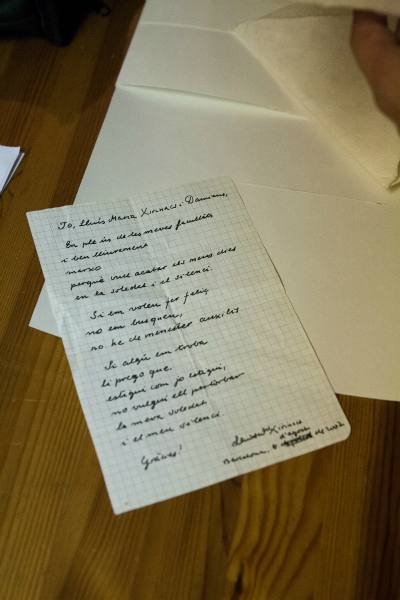 Jo, Lluís Maria Xirinacs i Damians,
En ple ús de les meves facultats
i ben lliurement
marxo
perquè vull acabar els meus dies
en la soledat i el silenci.
Si em voleu fer feliç
no em busqueu,
no he de menester auxilis
Si algú em troba
li prego que,
estigui com jo estigui,
no vulgui ell pertorbar
la meva soledat
i el meu silenci.
Gràcies!
Xirinacs
d'agost
Barcelona, de 2002